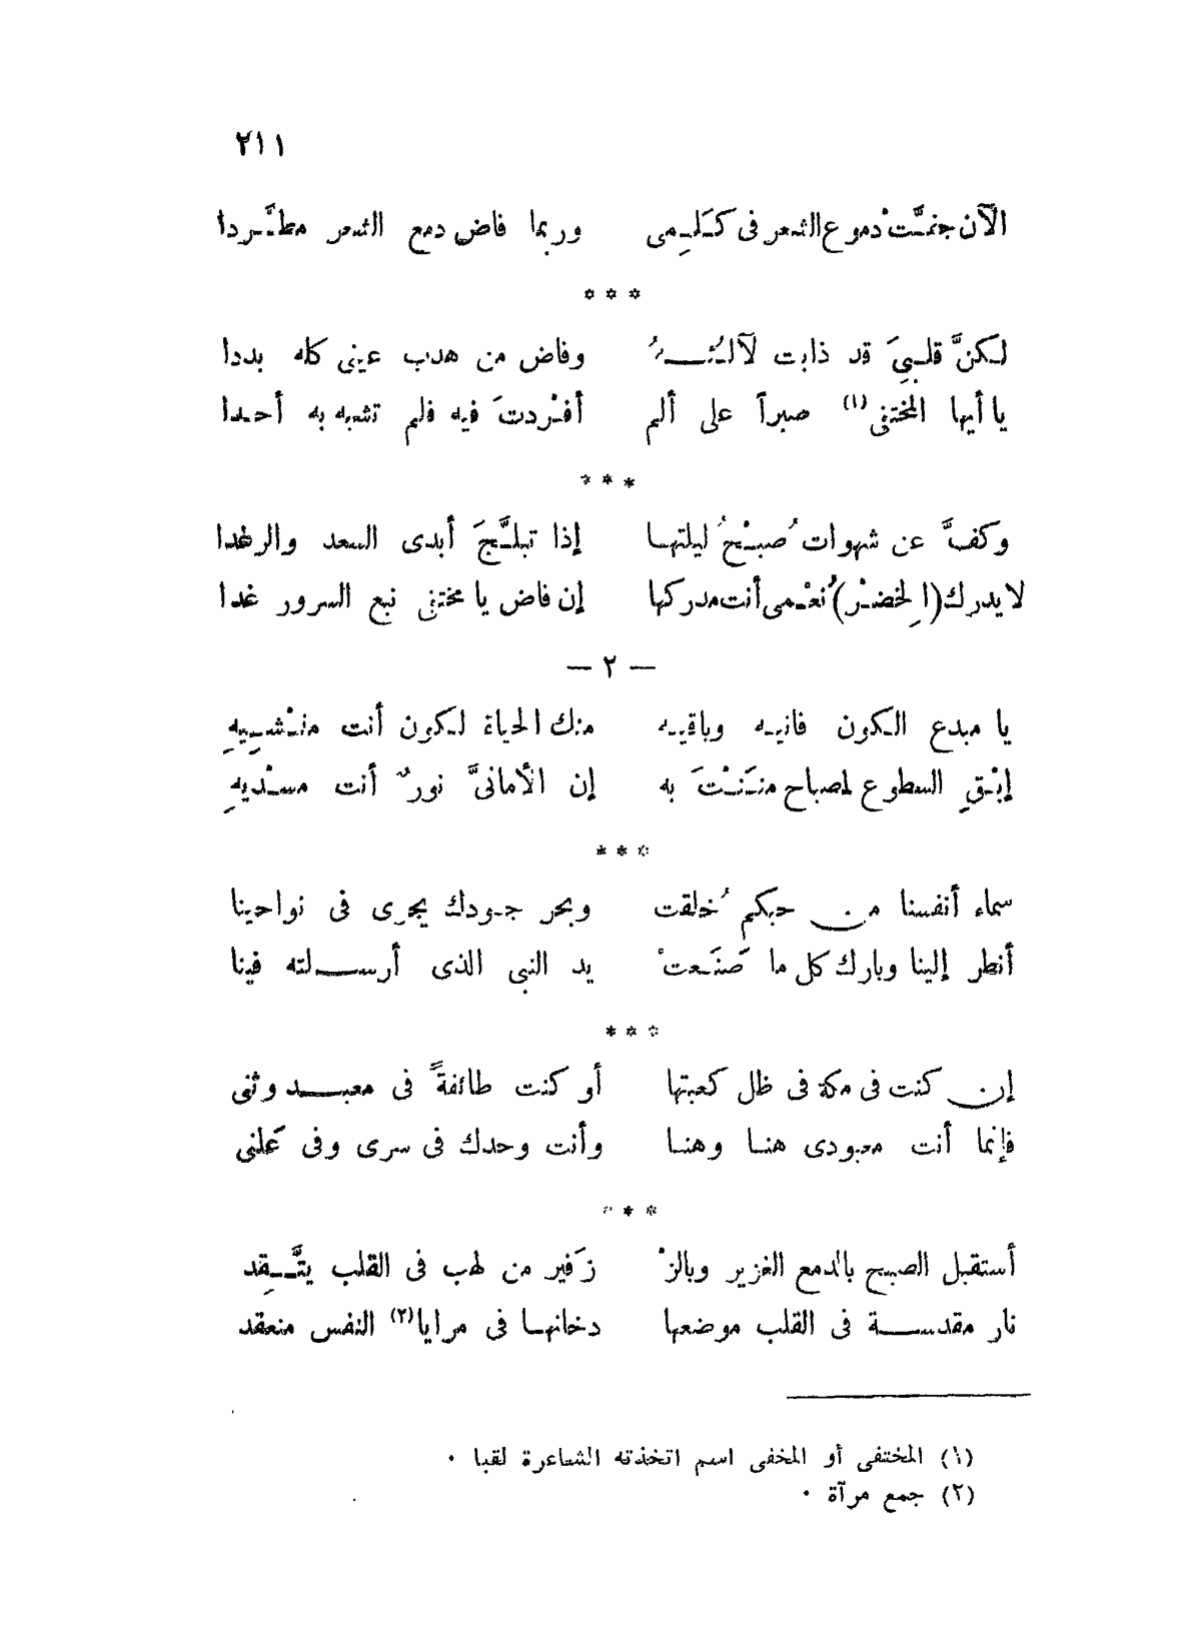 ٢١١
الآن جفَّتْ دموع الشعر فى كَلِمى وربما فاض دمع الشعر مطَّردا
* * *
لكنَّ قلبِيَ قد ذابت لآلئُهُ وفاض من هدب عينى كله بددا
يا أيها المختفى (١) صبراً على ألم أفْردتَ فيه فلم تشبه به أحدا
* * *
وكفَّ عن شهوات صُبْحُ ليلتها إذا تبلَّجَ أبدى السعد والرغدا
لا يدرك (الخِضْر) نُعْمى أنت مدركها إن فاض يا مختفى نبع السرور غدا
— ٢ —
يا مبدع الكون فانيه وباقيه منك الحياة لكون أنت منْشِيهِ
إبْقِ السطوع لمصباح مَنَنْتَ به إن الأمانىَّ نورٌ أنت مسْديهِ
* * *
سماء أنفسنا من حبكم خُلقت وبحر جودك يجرى فى نواحينا
أنظر إلينا وبارك كل ما صَنَعتْ يد النبى الذى أرسلته فينا
* * *
إن كنت فى مكة فى ظل كعبتها أو كنت طائفةً فى معبد وثنى
فإنما أنت معبودى هنا وهنا وأنت وحدك فى سرى وفى عَلنى
* * *
أستقبل الصبح بالدمع الغزير وبالزْ زَفير من لهب فى القلب يتَّقِد
نار مقدسة فى القلب موضعها دخانها فى مرايا (٢) النفس منعقد
(١) المختفى أو المخفى اسم اتخذته الشاعرة لقبا .
(٢) جمع مرآة .